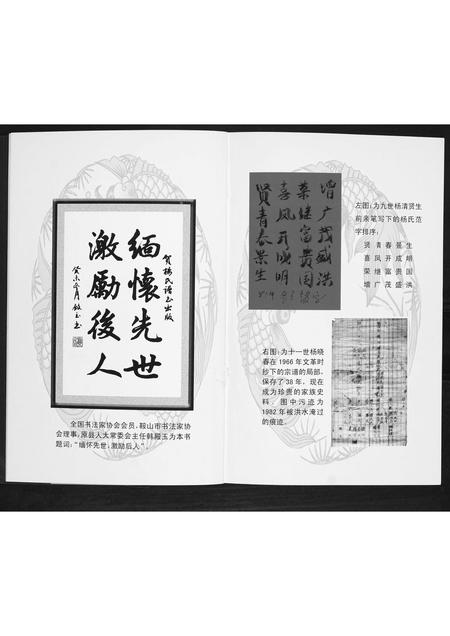 贺杨氏谱书出版
缅怀先世
激励後人
癸未年月殿玉书
全国书法家协会会员,鞍山市书法家协
会理事,原县人大常委会主任韩殿玉为本书
题词:“缅怀先世,激励后人”。
增广茂盛洪
荣继富贵国
喜凤开成明
贤青春景生
左图:为九世杨清贤生
前亲笔写下的杨氏范
字排序:
贤青春景生
喜凤开成明
荣继富贵国
增广茂盛洪
右图:为十一世杨晓
春在1966年文革时
抄下的宗谱的局部,
保存了38年,现在
成为珍贵的家族史
料。图中污迹为
1982年被洪水淹过
的痕迹。